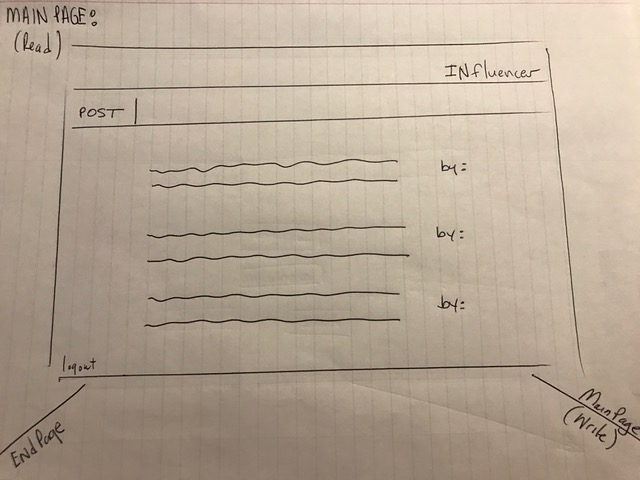 MAIN PAGE:
(Read)
INfluencer
POST
by:
by:
by:
logout
End Page
Main Page
(Write)